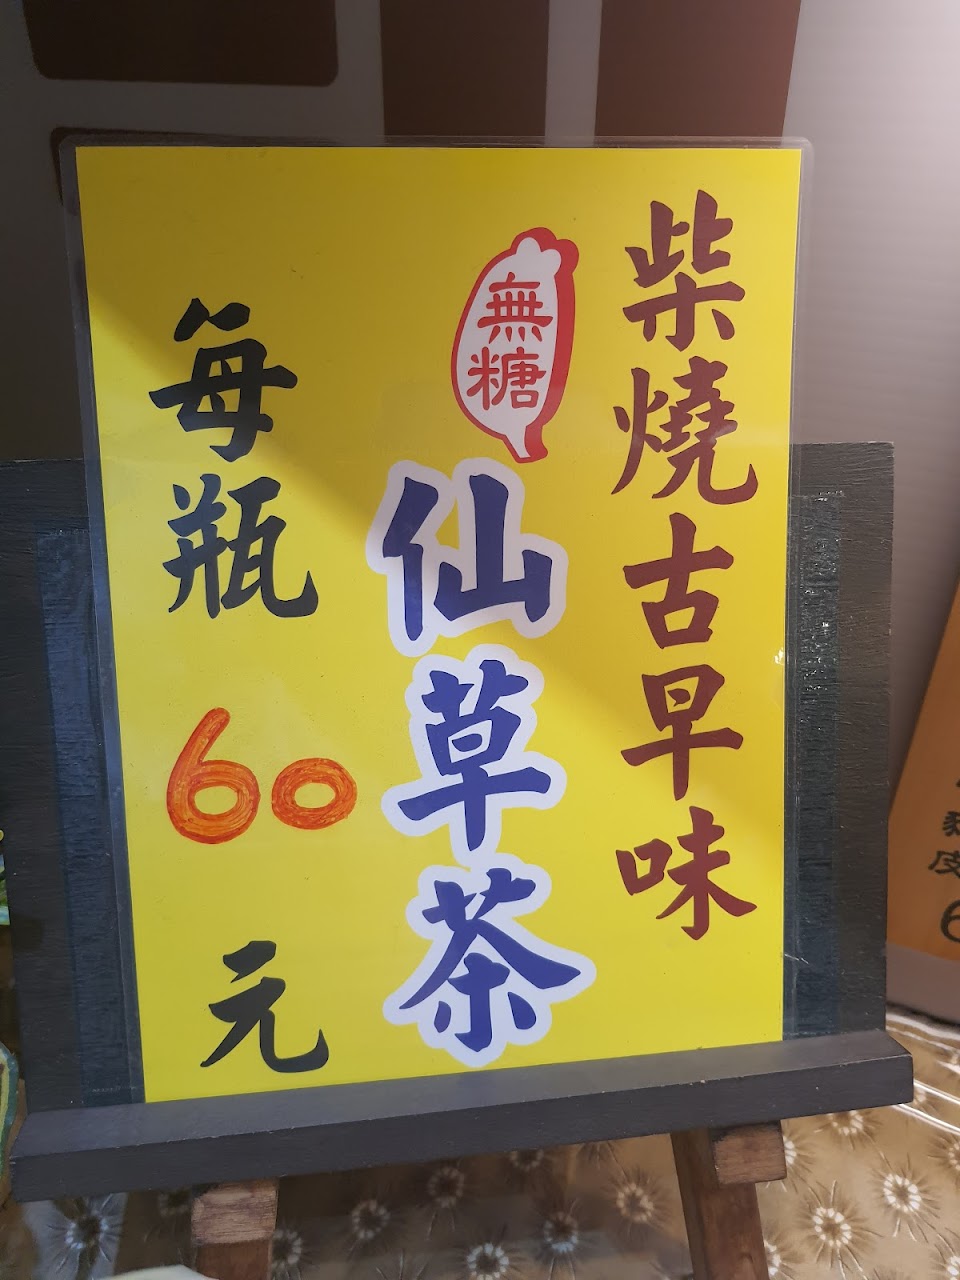 柴燒古早味
無糖
仙草茶
每瓶60元
皮